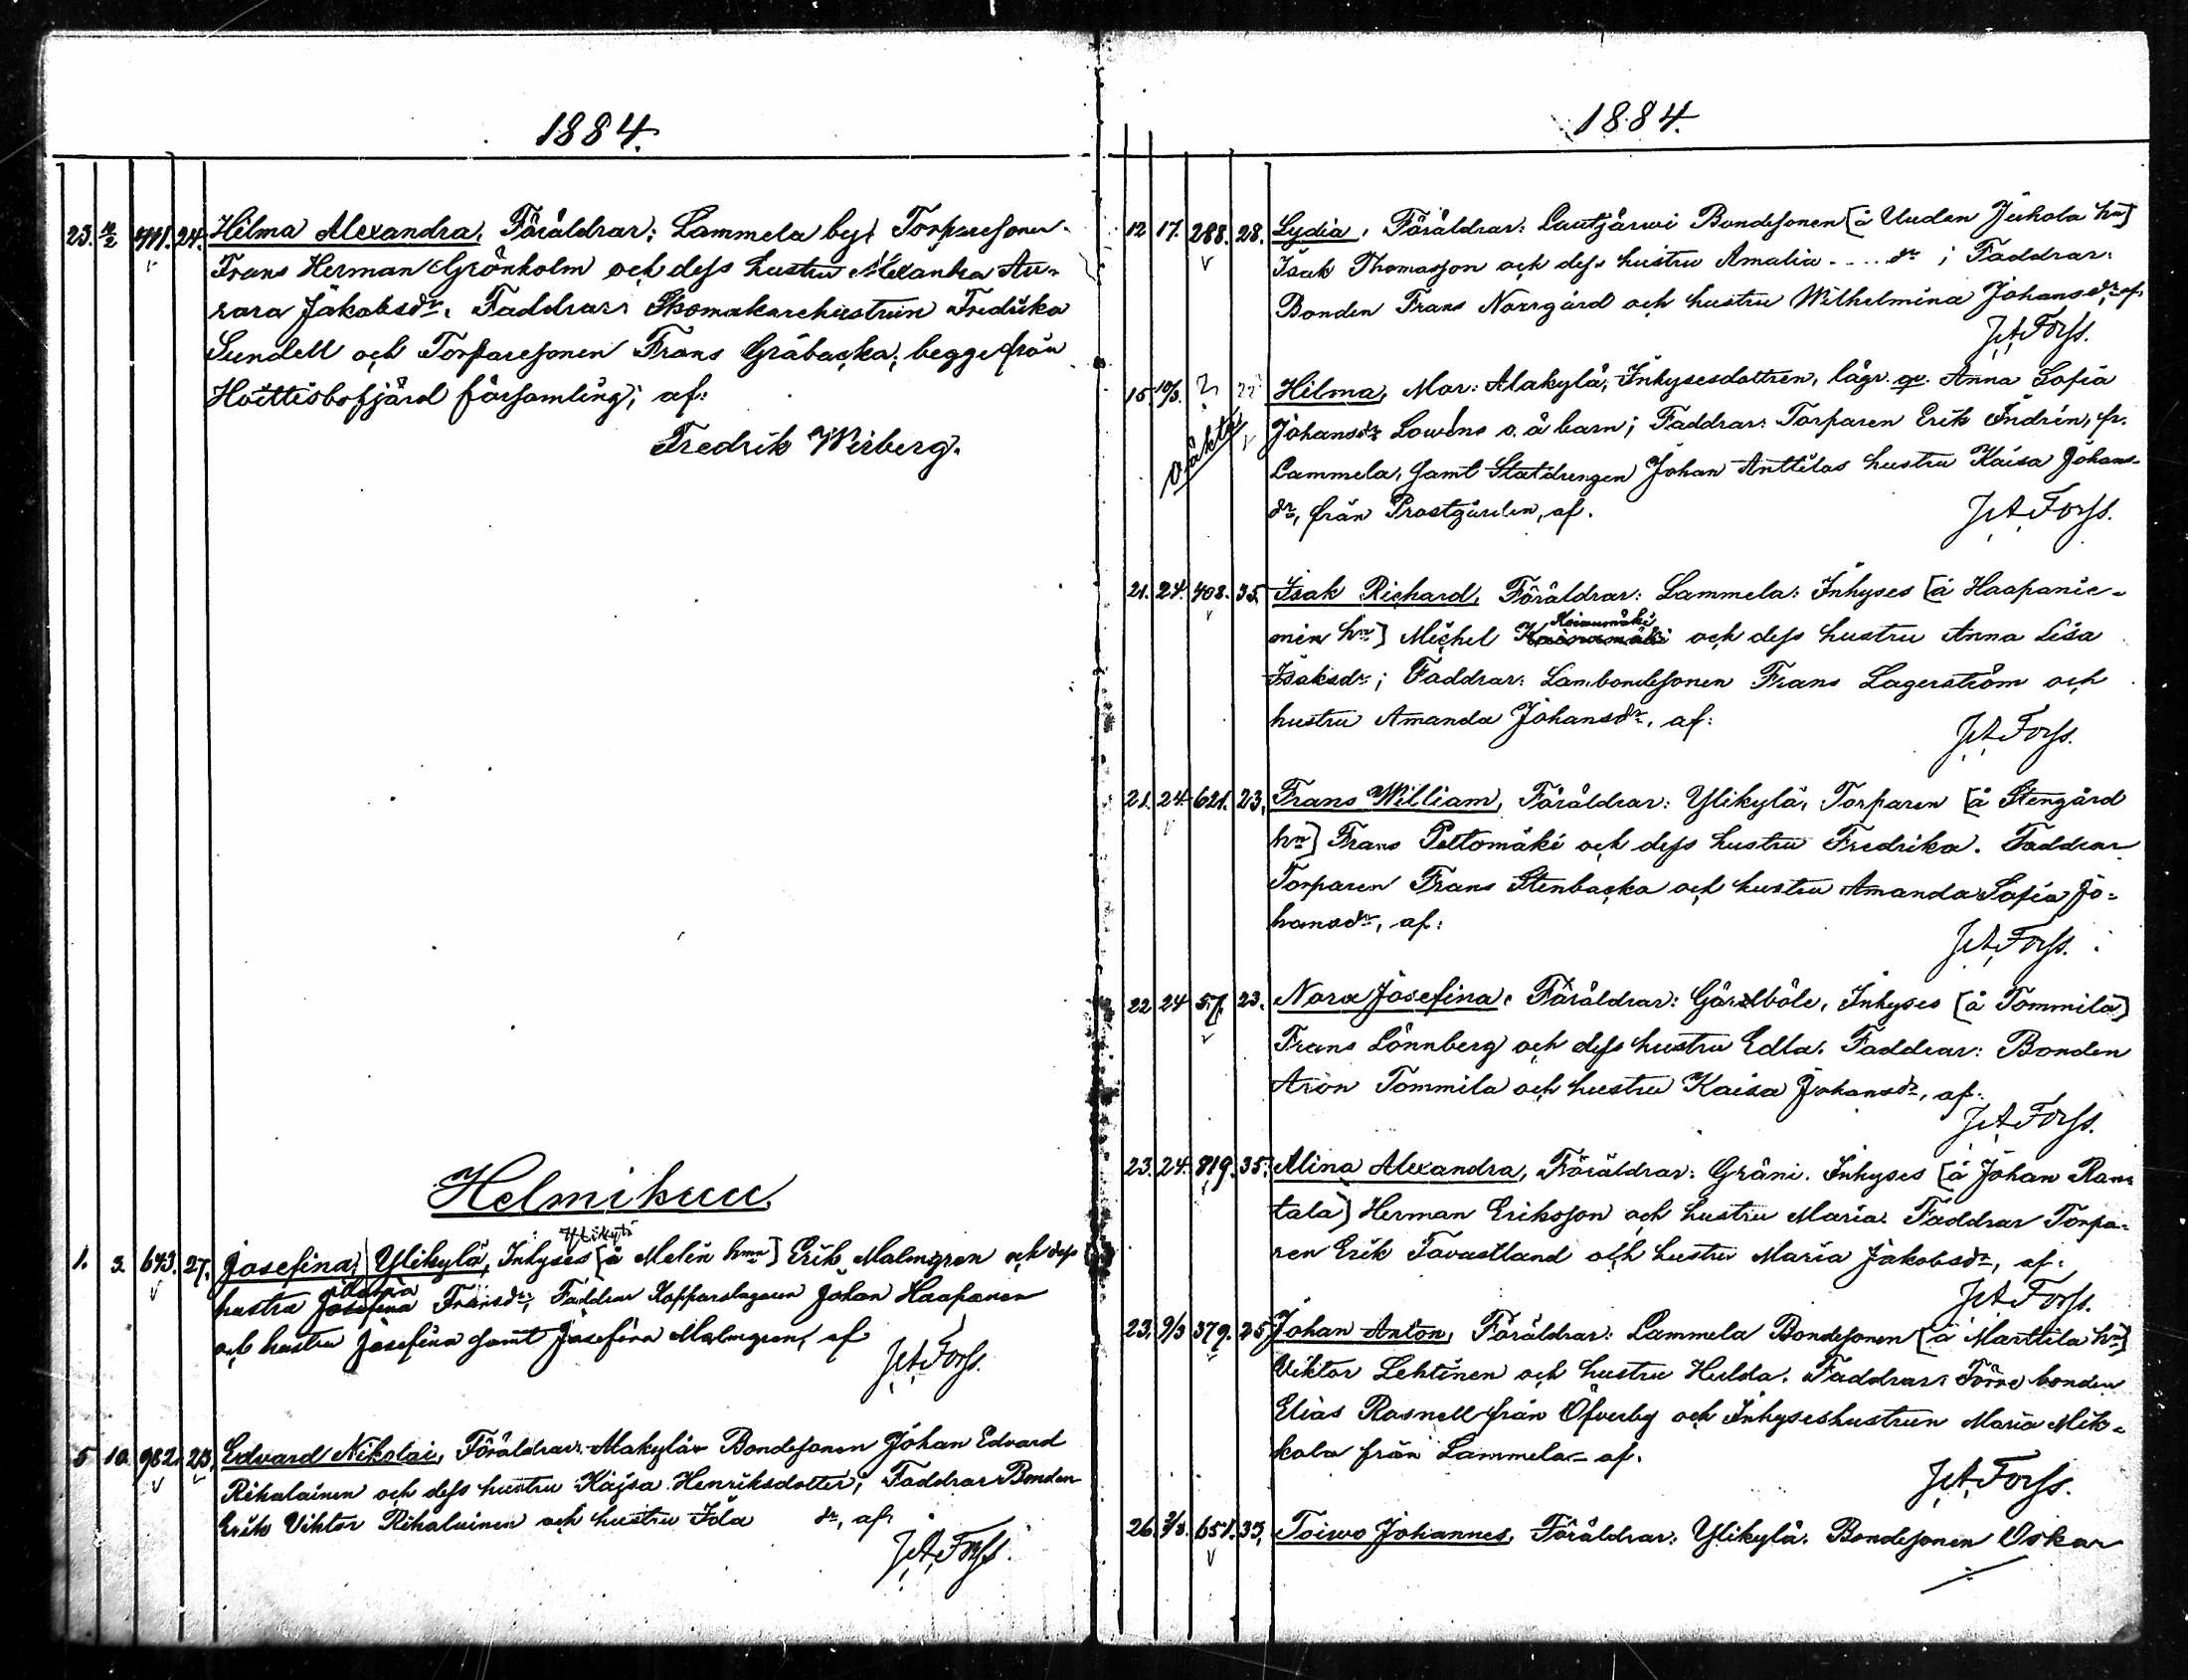 1884.
23. 4/2 24. Hilma Alexandra, Föräldrar: Lammela by, Torparesonen
Frans Herman Grönholm och dess hustru Alexandra Au-
rora Jakobsdr. Faddrar: Skomakarehustrun Fredrika
Sundell och Torparesonen Frans Gräbacka, begge från
Hvittisbofjärd församling; af:
Fredrik Wirberg.
Helmikuu
Ylikylä
1. 3. 643. 27. Josefina, Ylikylä, Inhyses [å Melén hmn] Erik Malmgren och dess
hustru Josefina Fransdr; Faddrar Kopparslagaren Johan Haapanen
och hustru Josefina samt Josefina Malmgren, af
J.A. Forss.
5 10 982. 23. Edvard Nikolai, Föräldrar: Alakylä Bondesonen Johan Edvard
Rihalainen och dess hustru Kajsa Henriksdotter; Faddrar Bonden
Erik Viktor Rihalainen och hustru Ida dr, af:
J.A. Forss.
1884.
12 17. 288. 28. Lydia, Föräldrar: Lautjärwi Bondesonen [å Uuden Juhola hn]
Isak Thomasson och dess hustru Amalia .... dr; Faddrar:
Bonden Frans Norrgård och hustru Wilhelmina Johansdr, af.
J.A. Forss.
15 10/3. ? ?? Hilma, Mor: Alakylä, Inhysesdottren, lägr. qv. Anna Sofia
Johansdr Lowéns o. ä barn; Faddrar: Torparen Erik Indrén, fr.
oäkta
Lammela, samt Statdrengen Johan Anttilas hustru Kaisa Johans-
dr, från Prostgården, af.
J.A. Forss.
21. 24. 408. 35 Isak Richard, Föräldrar: Lammela: Inhyses [å Haapanie-
men hn] Michel Koiwumäki och dess hustru Anna Lisa
Isaksdr; Faddrar: Lambondesonen Frans Lagerström och
hustru Amanda Johansdr, af:
J.A. Forss.
21. 24. 621. 23, Frans William, Föräldrar: Ylikylä, Torparen [å Stengård
hn] Frans Peltomäki och dess hustru Fredrika. Faddrar
Torparen Frans Stenbacka och hustru Amanda Sofia Jo-
hansdr, af:
J.A. Forss.
22 24 57. 23. Nora Josefina, Föräldrar: Gårdböle, Inhyses [å Tommila]
Frans Lönnberg och dess hustru Edla. Faddrar: Bonden
Aron Tommila och hustru Kaisa Johansdr, af:
J.A. Forss.
23. 24. 819. 35. Alina Alexandra, Föräldrar: Gräni. Inhyses [å Johan Ran-
tala] Herman Eriksson och hustru Maria. Faddrar Torpa-
ren Erik Tavastland och hustru Maria Jakobsdr, af:
J.A. Forss.
23. 9/3 379. 25 Johan Anton, Föräldrar: Lammela Bondesonen [å Marttila hn]
Viktor Lehtinen och hustru Hulda. Faddrar: Förre bonden
Elias Rosnell från Öfverby och Inhyseshustrun Maria Mik-
kola från Lammela af.
J.A. Forss.
26. 2/3. 651. 35, Toiwo Johannes, Föräldrar: Ylikylä. Bondesonen Oskar